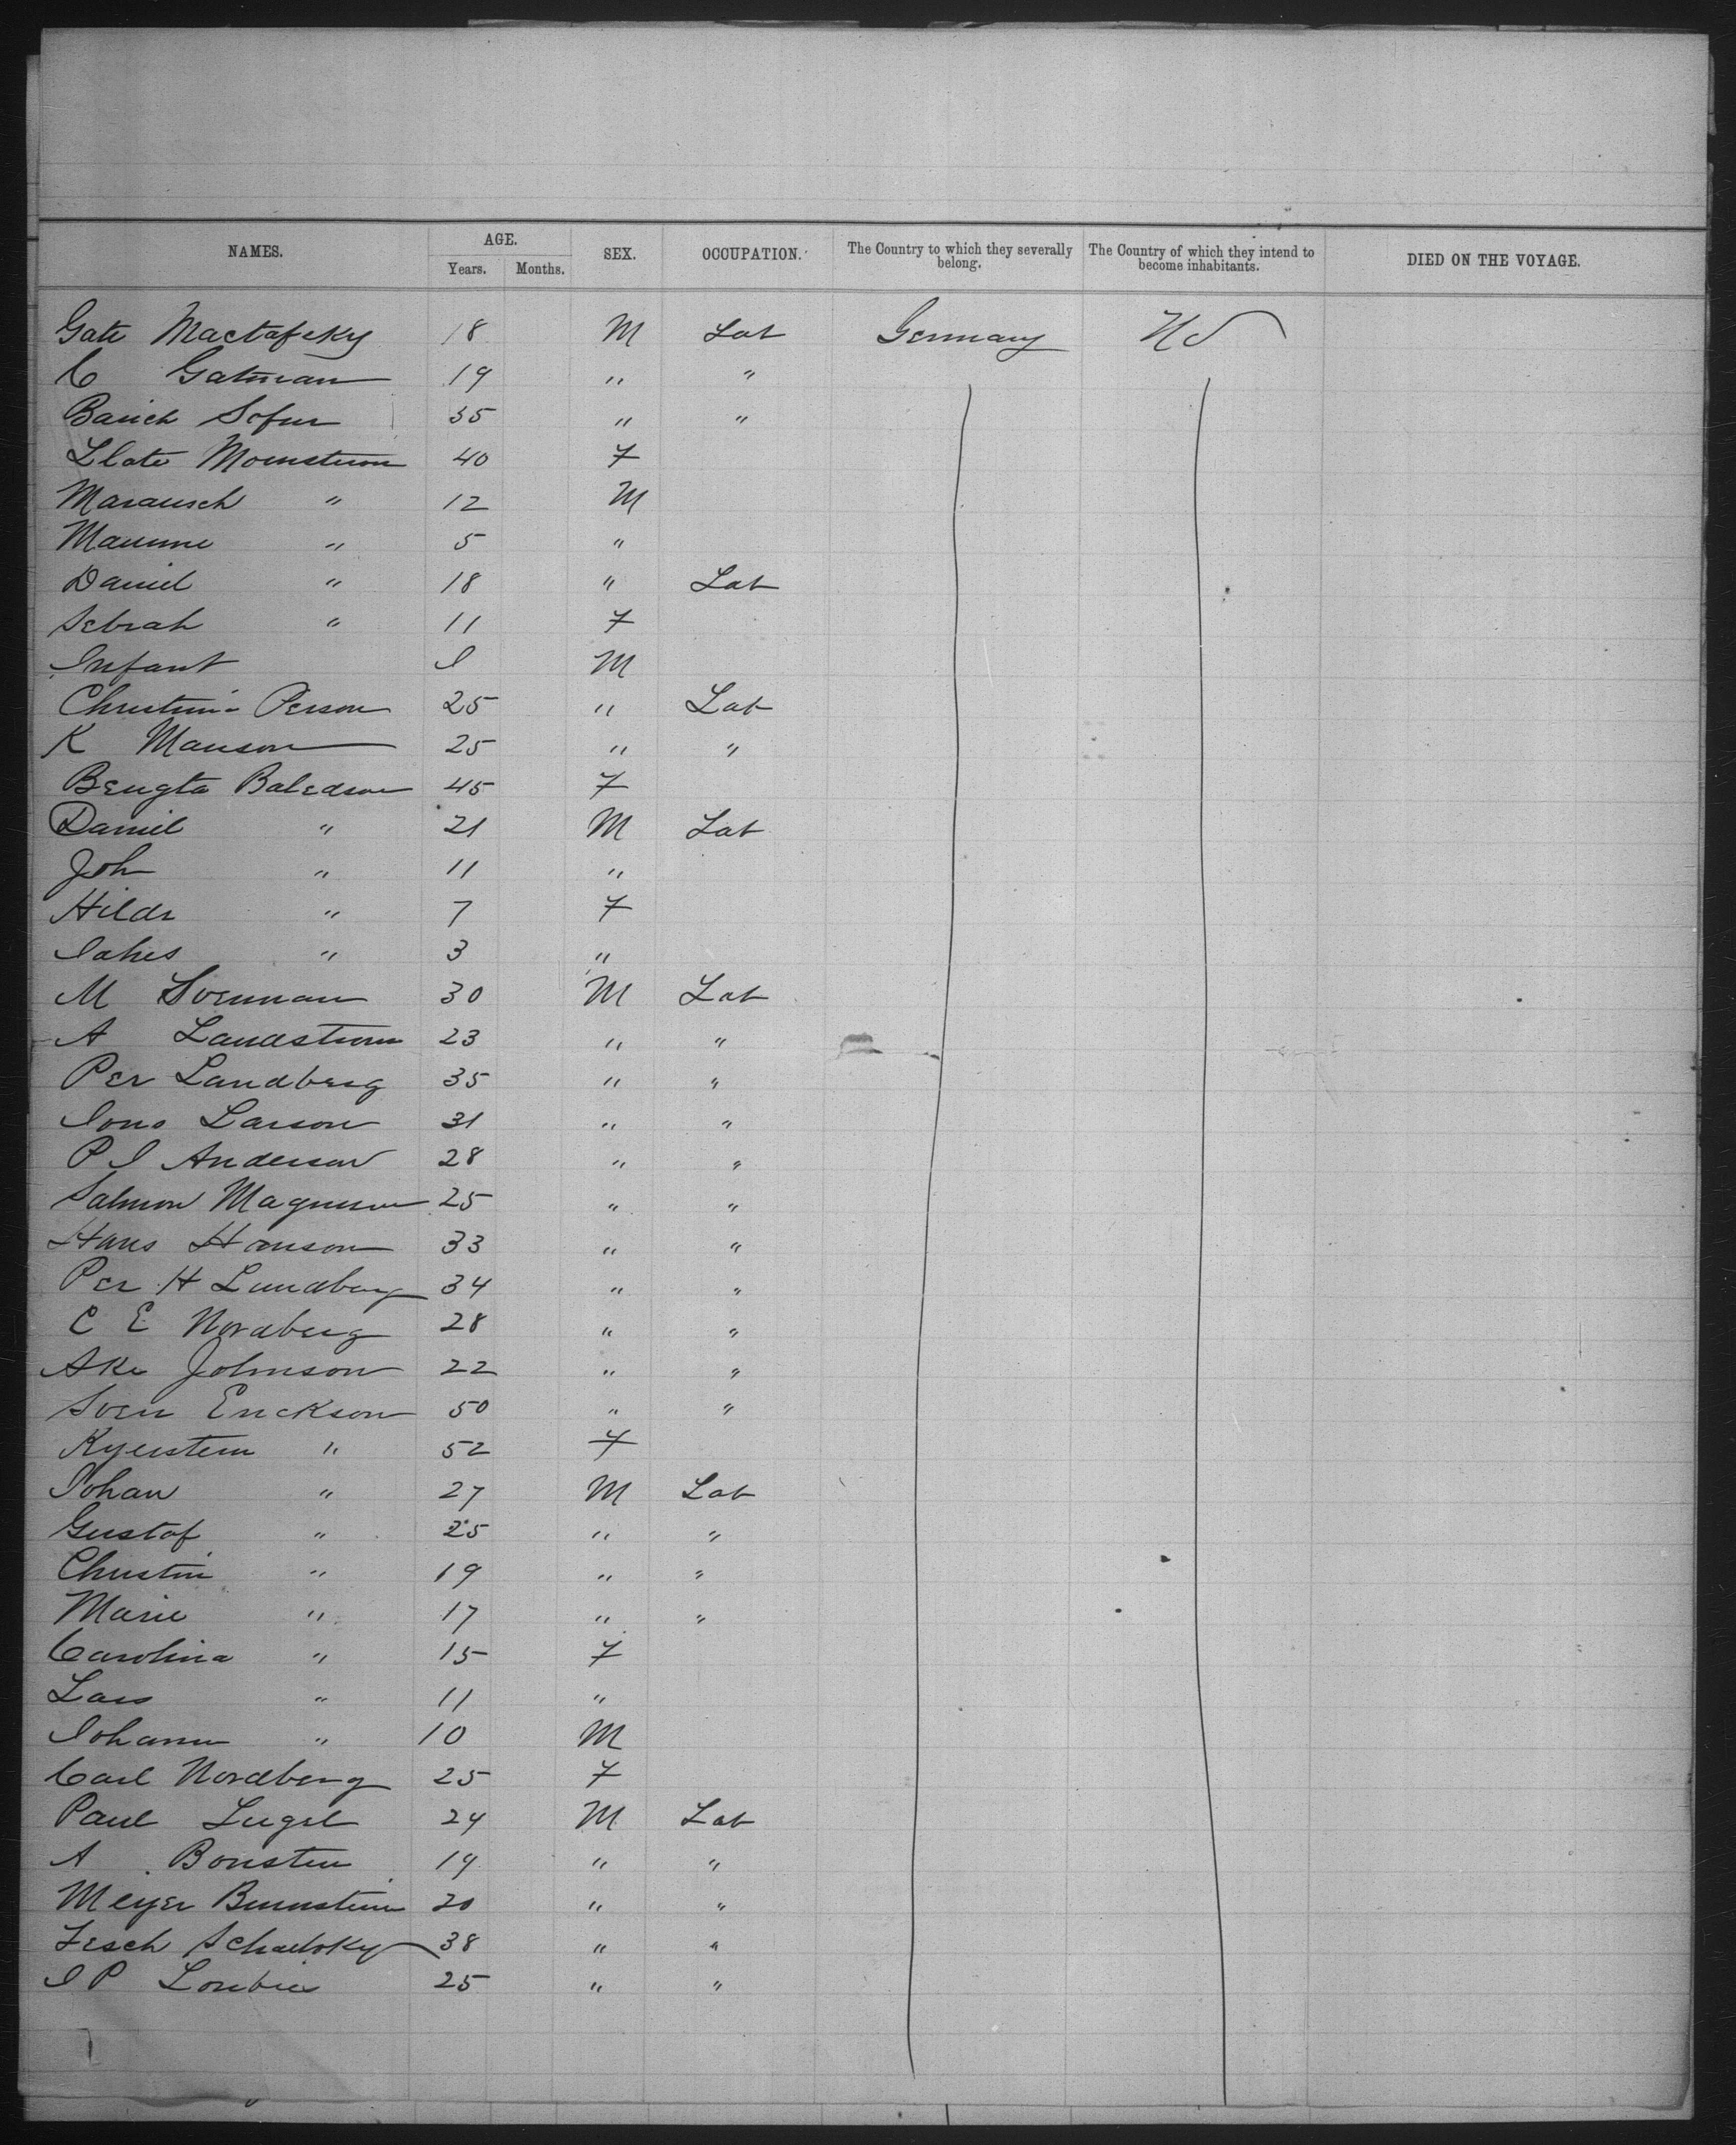 NAMES. AGE. SEX. OCCUPATION. The Country to which they severally belong. The Country of which they intend to become inhabitants. DIED ON THE VOYAGE.
Years. Months.
Gate Mactafsky 18 M Lab Germany US
C Gatman 19 " "
Barich Sofur 35 " "
Llate Mornstein 40 F
Marausch " 12 M
Maumne " 5 "
Daniel " 18 " Lab
Sebrah " 11 F
Infant I M
Christina Person 25 " Lab
K Manson 25 " "
Bengta Baledson 45 F
Daniel " 21 M Lab
Joh " 11 "
Hilda " 7 F
Iahes " 3 "
M Svenman 30 M Lab
A Landstrom 23 " "
Per Landberg 35 " "
Jons Larson 31 " "
P I Anderson 28 " "
Salmon Magnuson 25 " "
Hans Hanson 33 " "
Per H Lundberg 34 " "
C E Nordberg 28 " "
Ake Johnson 22 " "
Sven Erickson 50 " "
Kyerstein " 52 F
Johan " 27 M Lab
Gustaf " 25 " "
Christin " 19 " "
Marie " 17 " "
Carolina " 15 F
Lars " 11 "
Johann " 10 M
Carl Nordberg 25 F
Paul Lugel 24 M Lab
A Bonstein 19 " "
Meyer Burnstein 20 " "
Fesch Schaelsky 38 " "
I P Lorubies 25 " "